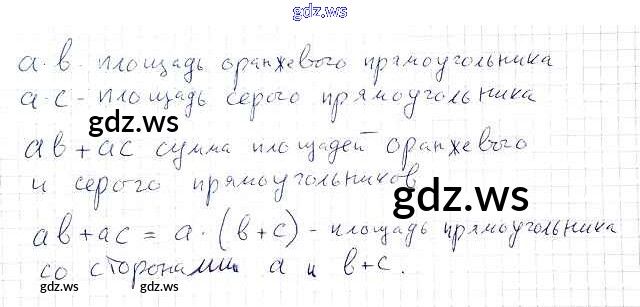 gdz.ws
а·в - площадь оранжевого прямоугольника
а·с - площадь серого прямоугольника
gdz.ws
ав + ас сумма площадей оранжевого
и серого прямоугольников
gdz.ws
ав+ас = а·(в+с) - площадь прямоугольника
со сторонами а и в+с.
gdz.ws
gdz.ws